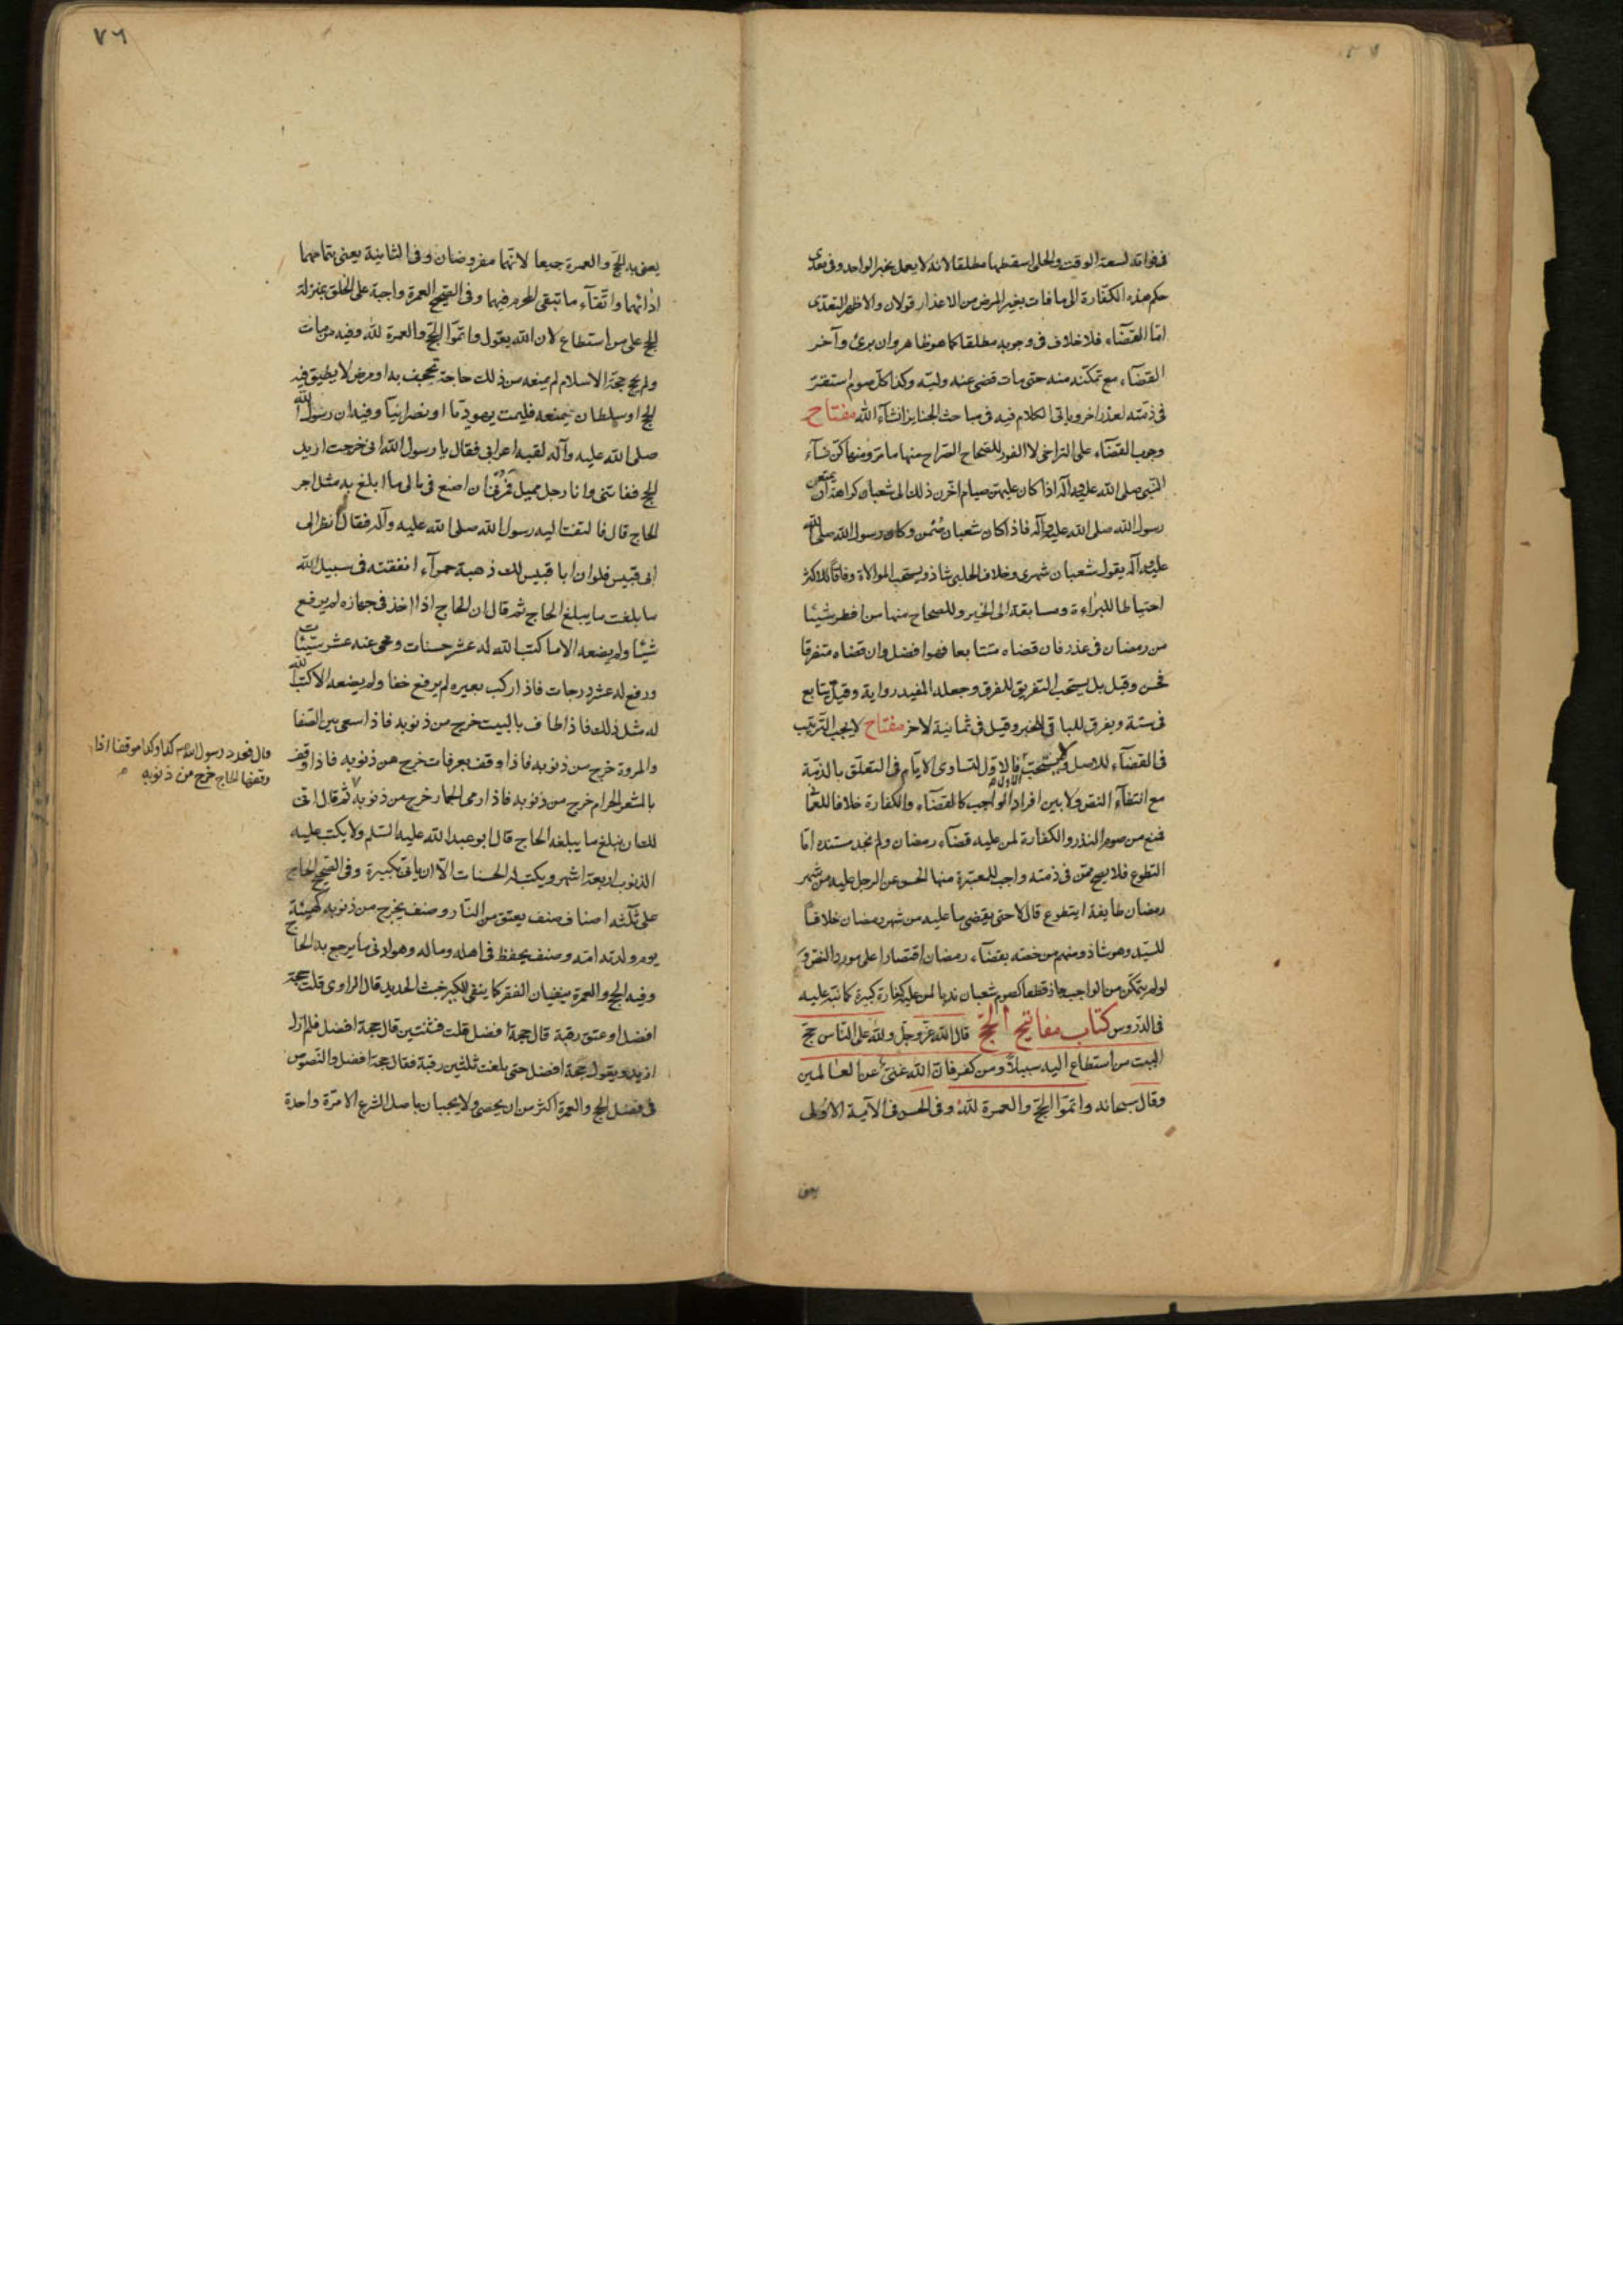 في فواته لسعة الوقت والحلي اسقطها مطلقا لانه لا يعمل بخبر الواحد وفي تعدي
حكم هذه الكفارة الى ما فات بغير المرض من الاعذار قولان والاظهر التعدي
امّا القضاء فلا خلاف في وجوبه مطلقا كما هو ظاهر وان برئ وآخر
القضاء مع تمكنه منه حتى مات قضى عنه وليّه وكذا كل صوم استقر
في ذمته لعذر اخر وياتي الكلام فيه في مباحث الجنايز انشاء الله مفتاح
وجوب القضاء على التراخي لا الفور للصحاح الصراح منها ما مرّ ومنها كن نساء
النبي صلى الله عليه وآله اذا كان عليهن صيام اخّرن ذلك الى شعبان كراهة ان يمنعن
رسول الله صلى الله عليه وآله فاذا كان شعبان صمن وكان رسول الله صلى الله
عليه وآله يقول شعبان شهري وخلاف الحلبي شاذ ويستحب الموالاة وفاقا للاكثر
احتياطا للبراءة ومسابقة الى الخير وللصحاح منها من افطر شيئا
من رمضان في عذر فان قضاه متتابعا فهو افضل وان قضاه متفرقا
فحسن وقيل بل يستحب التفريق للفرق وجعله المفيد رواية وقيل يتابع
في ستة ويفرق للباقي للخبر وقيل في ثمانية لاخر مفتاح لا يجب الترتيب
في القضاء للاصل ولا يستحب فالاول لتساوي الايام في التعلق بالذمة
مع انتفاء النص ولا بين افراد الواجب كالقضاء والكفارة خلافا للعماني
فمنع من صوم النذر والكفارة لمن عليه قضاء رمضان ولم نجد مستنده امّا
التطوع فلا يصح ممن في ذمته واجب للمعتبرة منها الحسن عن الرجل عليه من شهر
رمضان طايفة ايتطوع قال لا حتى يقضي ما عليه من شهر رمضان خلافا
للسيد وهو شاذ ومنهم من خصّه بقضاء رمضان اقتصارا على مورد النص و
لو لم يتمكن من الواجب جاز قطعا كصوم شعبان ندبا لمن عليه كفارة كبيرة كما نبّه عليه
في الدروس كتاب مفاتيح الحج قال الله عزّ وجلّ ولله على الناس حج
البيت من استطاع اليه سبيلا ومن كفر فان الله غني عن العالمين
وقال سبحانه واتموا الحج والعمرة لله وفي الحسن في الآية الاولى
يعني
٧٦
يعني به الحج والعمرة جميعا لانهما مفروضان وفي الثانية يعني بتمامهما
اداءهما واتقاء ما يتقي المحرم فيهما وفي الصحيح العمرة واجبة على الخلق بمنزلة
الحج على من استطاع لان الله يقول واتموا الحج والعمرة لله وفيه من مات
ولم يحج حجة الاسلام لم يمنعه من ذلك حاجة تجحف به او مرض لا يطيق فيه
الحج او سلطان يمنعه فليمت يهوديا او نصرانيا وفيه ان رسول الله
صلى الله عليه وآله لقيه اعرابي فقال يا رسول الله اني خرجت اريد
الحج ففاتني وانا رجل مميل فمرني ان اصنع في مالي ما ابلغ به مثل اجر
الحاج قال فالتفت اليه رسول الله صلى الله عليه وآله فقال انظر الى
ابي قبيس فلو ان ابا قبيس لك ذهبة حمراء انفقته في سبيل الله
ما بلغت ما يبلغ الحاج ثم قال ان الحاج اذا اخذ في جهازه لم يرفع
شيئا ولم يضعه الا ما كتب الله له عشر حسنات ومحى عنه عشر سيئات
ورفع له عشر درجات فاذا ركب بعيره لم يرفع خفا ولم يضعه الا كتب الله
له مثل ذلك فاذا طاف بالبيت خرج من ذنوبه فاذا سعى بين الصفا
والمروة خرج من ذنوبه فاذا وقف بعرفات خرج من ذنوبه فاذا وقف
بالمشعر الحرام خرج من ذنوبه فاذا رمى الجمار خرج من ذنوبه ثم قال انى
لك ان تبلغ ما يبلغه الحاج قال ابو عبد الله عليه السلم ولا يكتب عليه
الذنوب اربعة اشهر ويكتب له الحسنات الا ان ياتي بكبيرة وفي الصحيح الحاج
على ثلثة اصناف صنف يعتق من النار وصنف يخرج من ذنوبه كهيئة
يوم ولدته امه وصنف يحفظ في اهله وماله وهو ادنى ما يرجع به الحاج
وفيه الحج والعمرة ينفيان الفقر كما ينفي الكير خبث الحديد قال الراوي قلت حجة
افضل او عتق رقبة قال حجة افضل قلت فثنتين قال حجة افضل فلم ازل
ازيد ويقول حجة افضل حتى بلغت ثلثين رقبة فقال حجة افضل والنصوص
في فضل الحج والعمرة اكثر من ان يحصى ولا يجبان باصل الشرع الا مرة واحدة
قال فعدد رسول الله كذا وكذا موقفا اذا
وقفها الحاج خرج من ذنوبه